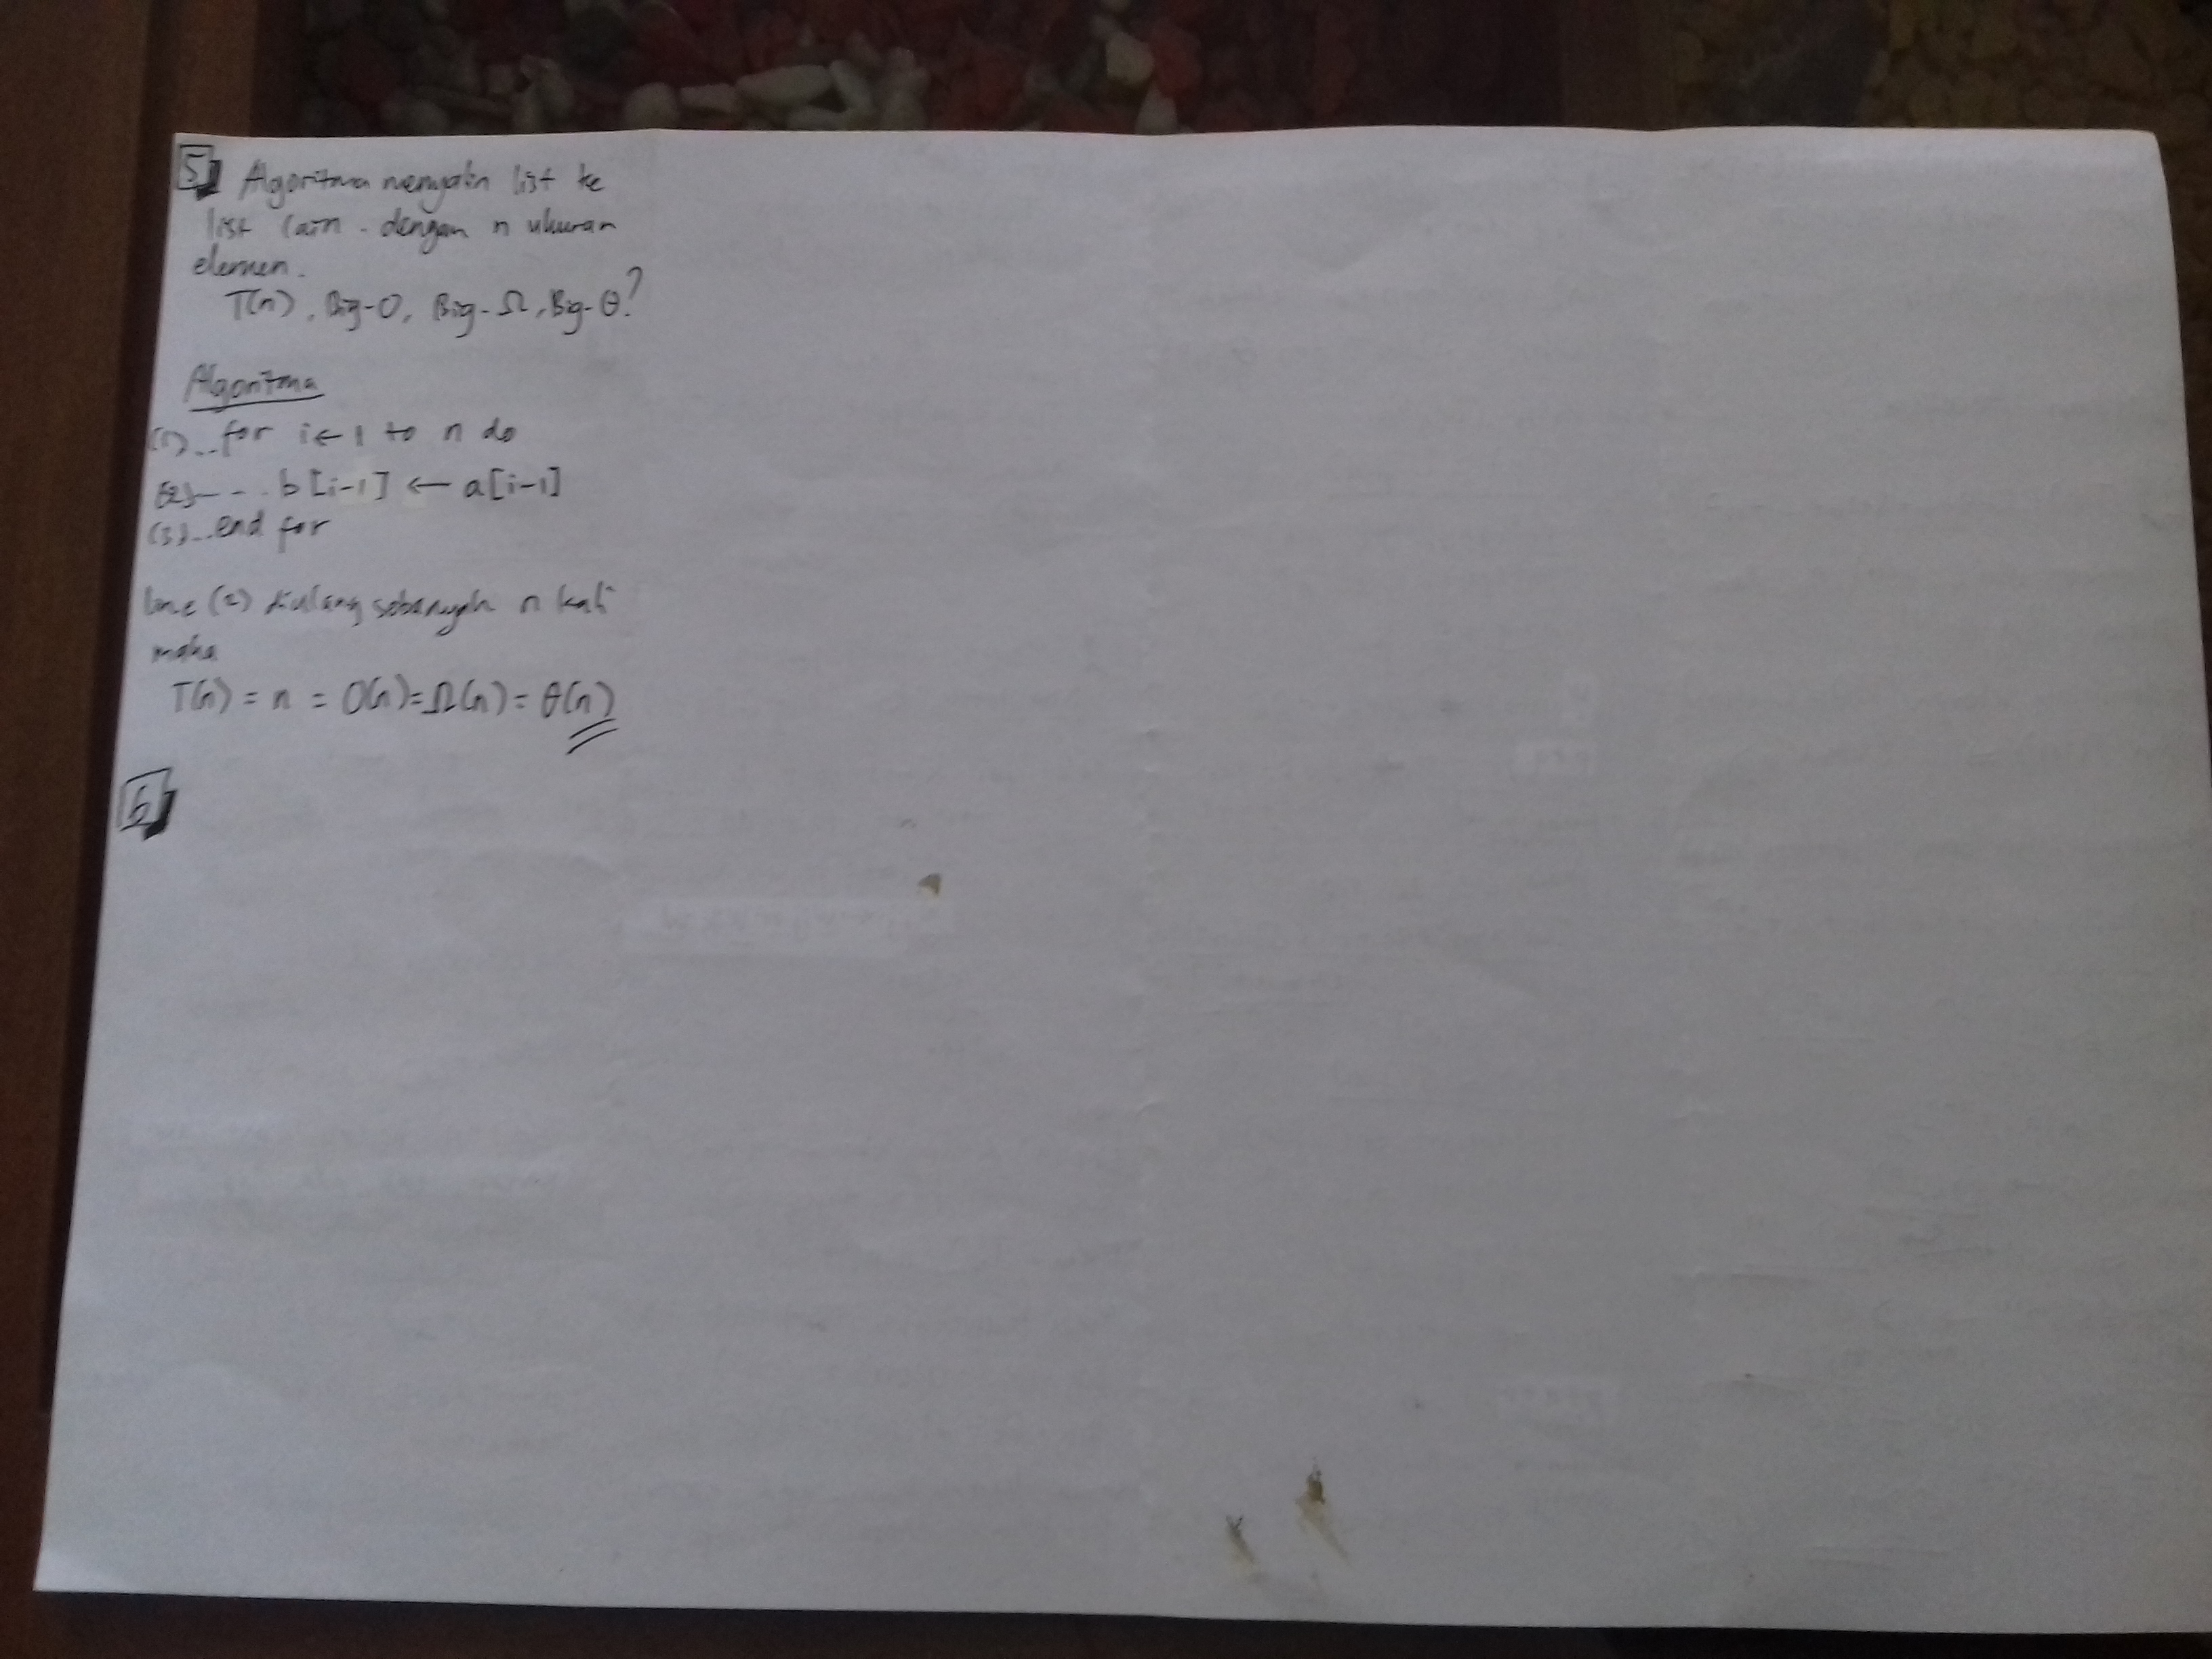 5 Algoritma menyalin list ke
list lain. dengan n ukuran
elemen.
T(n), Big-O, Big-Ω, Big-θ?
Algoritma
(1)..for i ← 1 to n do
(2)--- . b[i-1] ← a[i-1]
(3)..end for
line (2) diulang sebanyak n kali
maka
T(n) = n = O(n)=Ω(n)= θ(n)
6